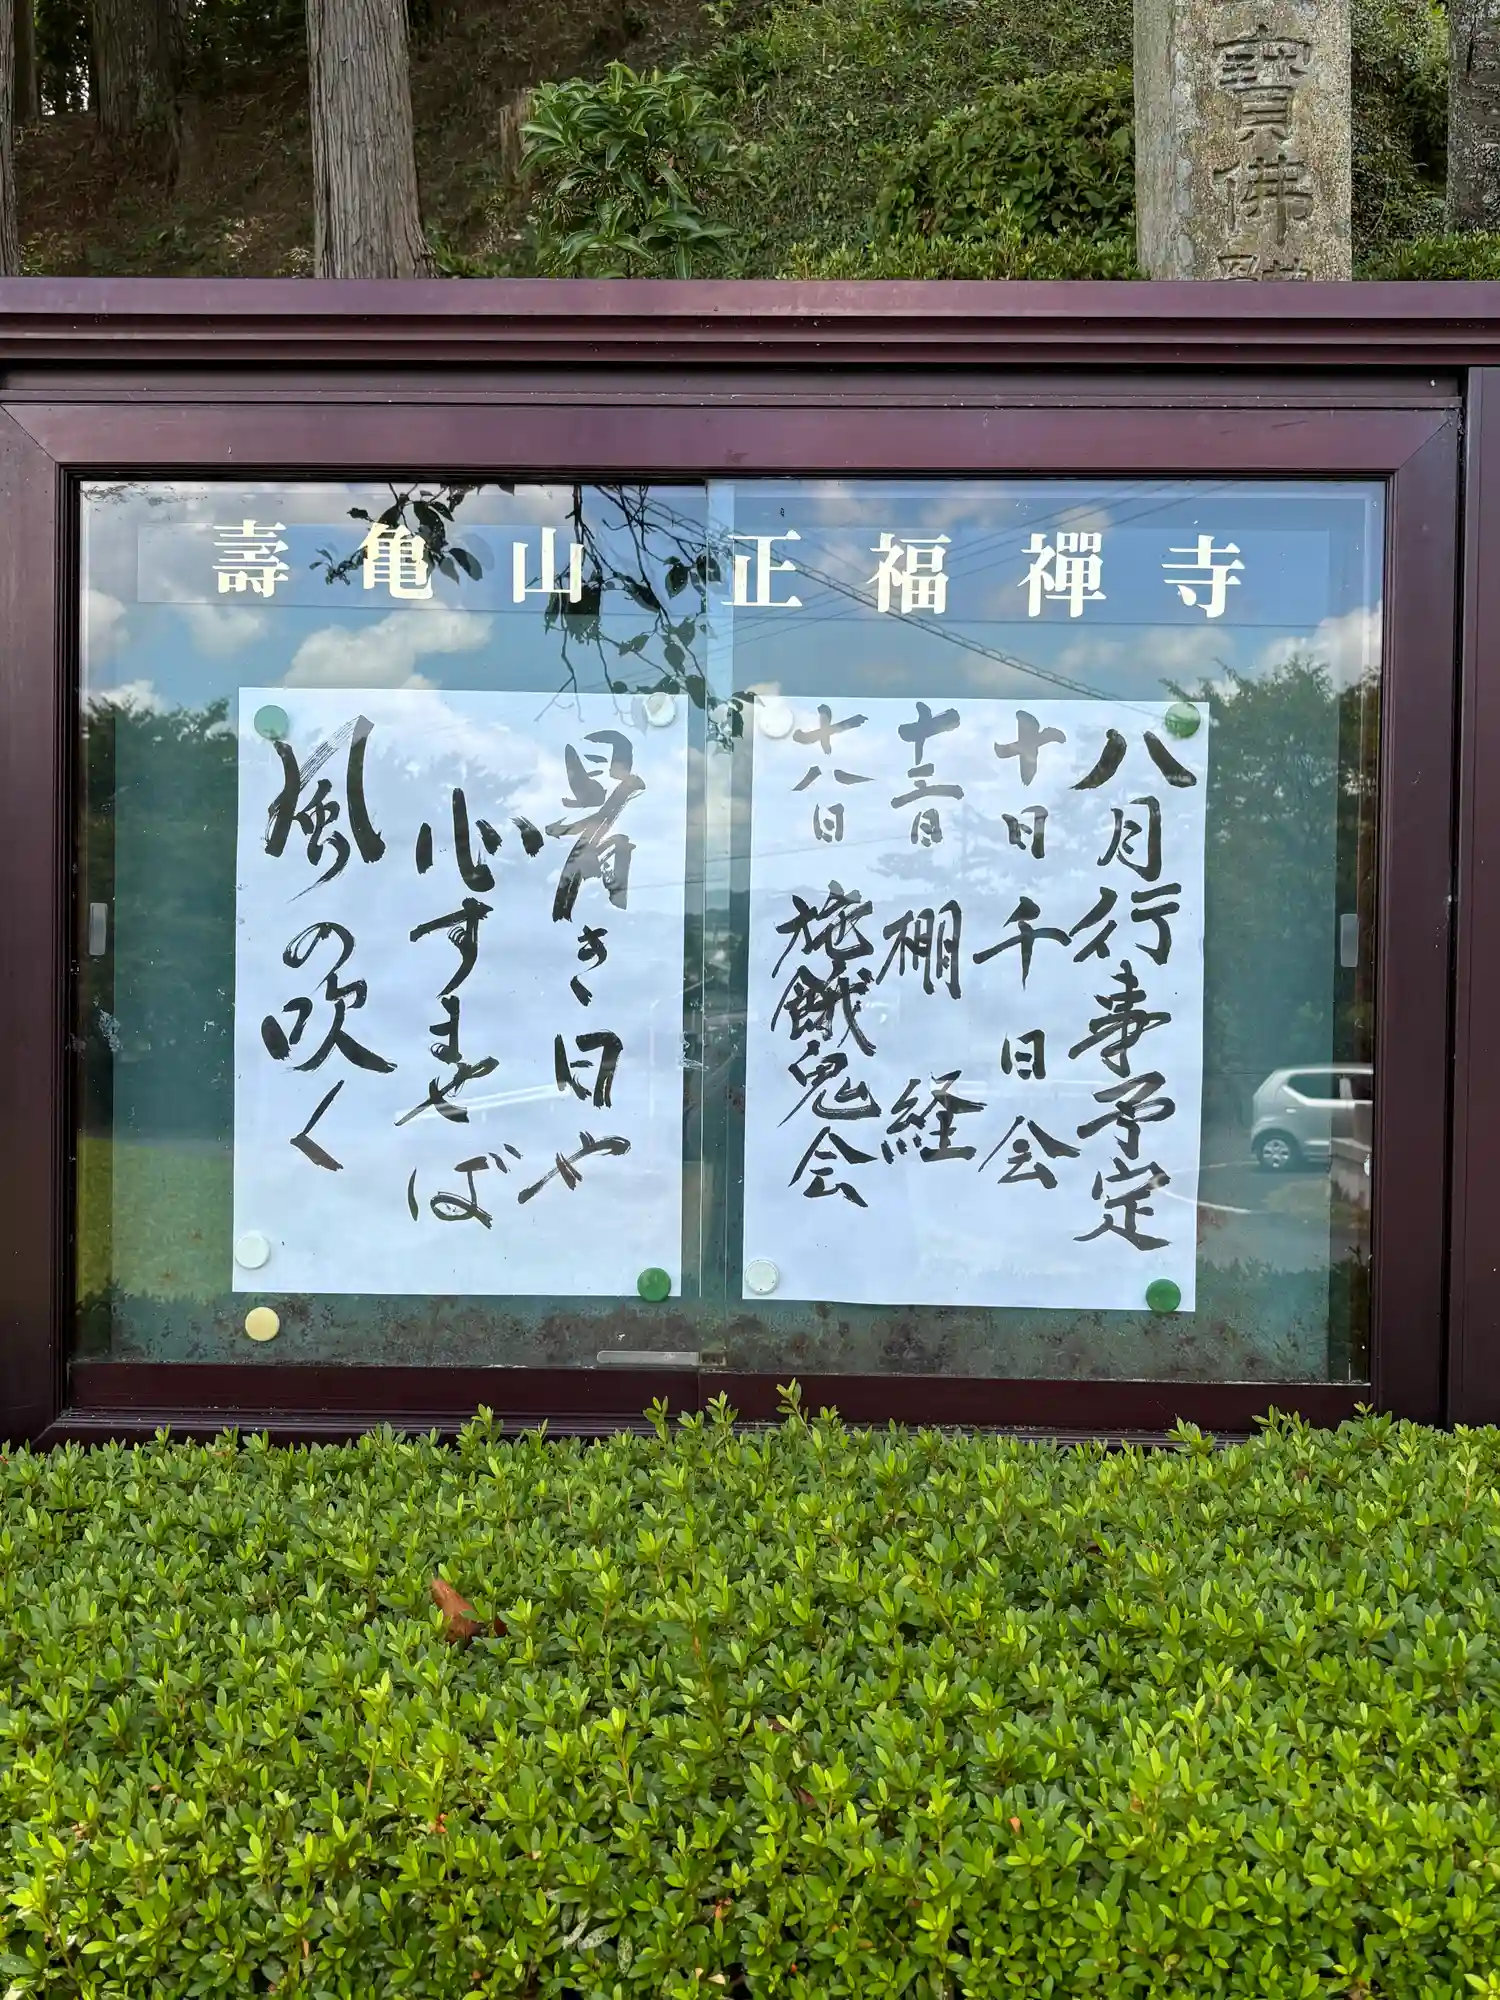 寶佛
壽亀山 正福禪寺
八月行事予定
十日 千日会
十三日 棚経
十八日 施餓鬼会
暑き日や
心すませば
風の吹く